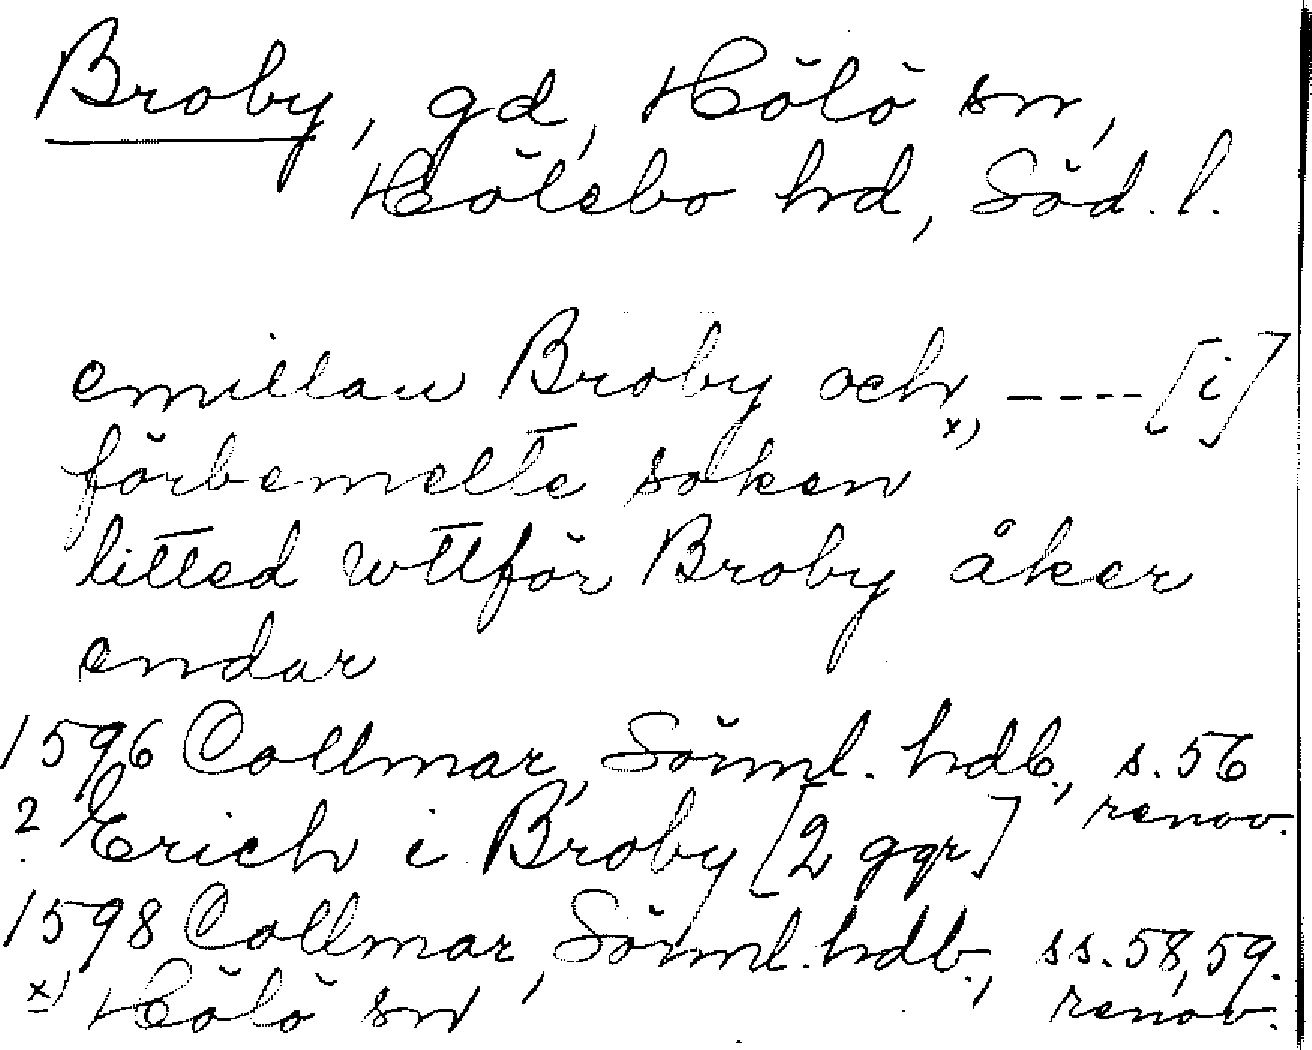 Broby, gd, Hölö sn,
Hölebo hd, Söd. l.
emillan Broby och, ----[i]
x)
förbemelte soken
litted wttför Broby åker
endar
1596 Collmar, Sörml. hdb., s. 56
renov.
? Erich i Broby [2 ggr]
1598 Collmar, Sörml. hdb., ss. 58, 59.
renov.
x) Hölö sn